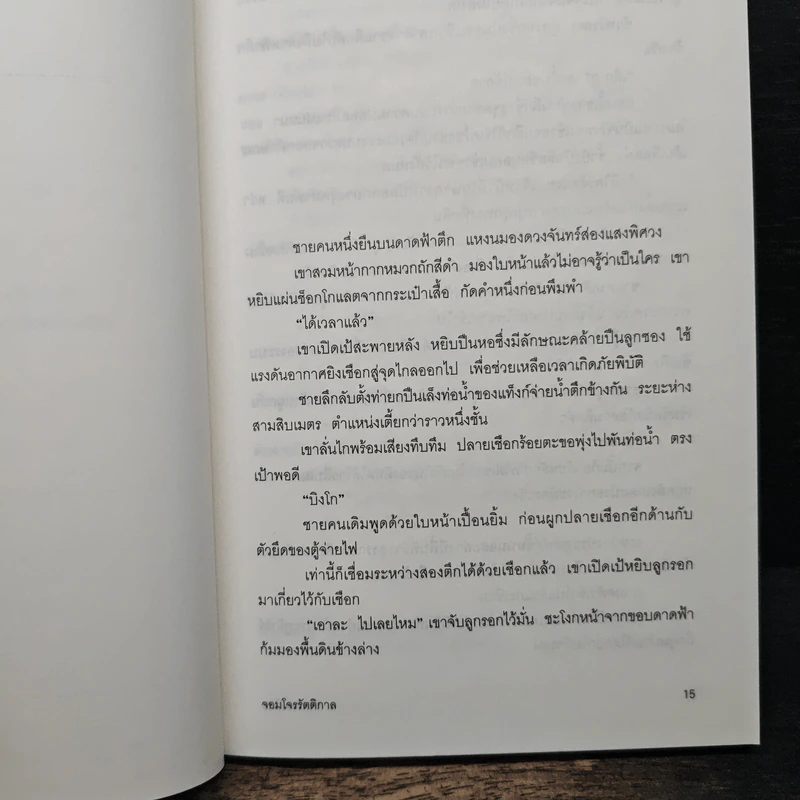 ชายคนหนึ่งยืนบนดาดฟ้าตึก แหงนมองดวงจันทร์ส่องแสงพิศวง
เขาสวมหน้ากากหมวกถักสีดำ มองใบหน้าแล้วไม่อาจรู้ว่าเป็นใคร เขา
หยิบแผ่นช็อกโกแลตจากกระเป๋าเสื้อ กัดคำหนึ่งก่อนพึมพำ
“ได้เวลาแล้ว”
เขาเปิดเป้สะพายหลัง หยิบปืนหอซึ่งมีลักษณะคล้ายปืนลูกซอง ใช้
แรงดันอากาศยิงเชือกสู่จุดไกลออกไป เพื่อช่วยเหลือเวลาเกิดภัยพิบัติ
ชายลึกลับตั้งท่ายกปืนเล็งท่อน้ำของแท็งก์จ่ายน้ำตึกข้างกัน ระยะห่าง
สามสิบเมตร ตำแหน่งเตี้ยกว่าราวหนึ่งชั้น
เขาลั่นไกพร้อมเสียงทึบทึม ปลายเชือกร้อยตะขอพุ่งไปพันท่อน้ำ ตรง
เป้าพอดี
“บิงโก”
ชายคนเดิมพูดด้วยใบหน้าเปื้อนยิ้ม ก่อนผูกปลายเชือกอีกด้านกับ
ตัวยึดของตู้จ่ายไฟ
เท่านี้ก็เชื่อมระหว่างสองตึกได้ด้วยเชือกแล้ว เขาเปิดเป้หยิบลูกรอก
มาเกี่ยวไว้กับเชือก
“เอาละ ไปเลยไหม” เขาจับลูกรอกไว้มั่น ชะโงกหน้าจากขอบดาดฟ้า
ก้มมองพื้นดินข้างล่าง
จอมโจรรัตติกาล
15